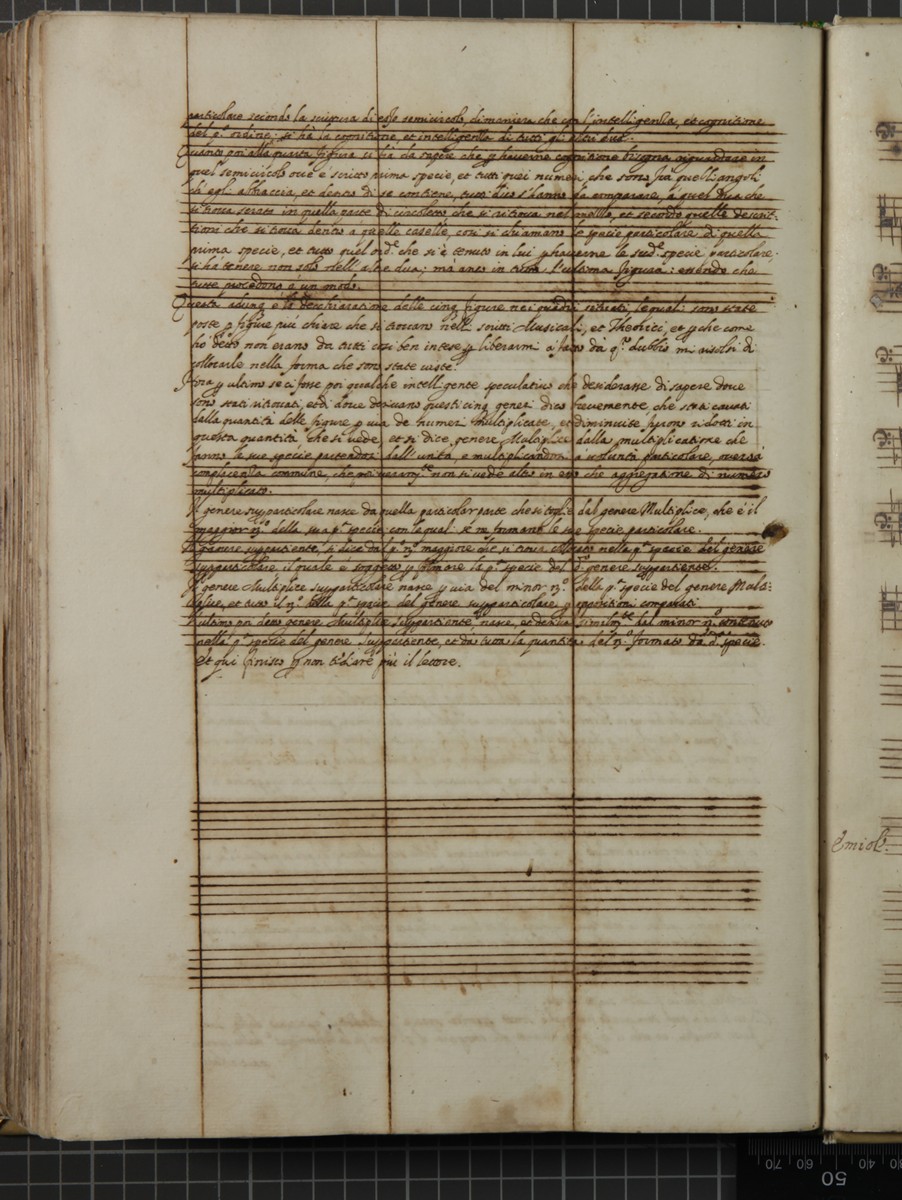 particolare secondo la scrittura di esso semicircolo, di maniera che con l'intelligenza, et cognitione
del p.º ordine; si hà la cognitione, et intelligenza di tutti gli altri due.
Quanto poi alla quarta figura si hà da sapere che p haverne cognitione bisogna riguardare in
quel semicircolo ove è scritto prima specie, et tutti quei numeri, che sono frà quelli angoli
ch'egli abbraccia, et dentro di se contiene, tutti dico s'hanno da comparare, à quel che
si trova serato in quella parte di circoletto che si ritrova nel mezzo, et secondo quelle descrit-
tioni che si trova dentro a quelle caselle, così si chiamano le specie particolare di quella
prima specie, et tutto quel ord.e che si è tenuto in lui p haverne le sud.e specie particolare
si hà tenere non solo nell'altre dua; mà anco in l'ultima figura: essendo che
tutte procedono à un modo.
Questa adunq è la deschiaratione delle cinq figure nei quadri situati lequali sono state
poste p figure più chiare che si trovano nelli scritti Musicali, et Theorici, et p che come
hò detto non erano da tutti così ben intese p liberarmi à fatto da q.º dubbio mi risolsi di
collocarle nella forma che sono state viste.
Hora p ultimo se ci fosse poi qualche intelligente speculativo che desiderasse di sapere dove
sono stati ritrovati, et di dove derivano questi cinq generi dico brevemente, che sono cavati
dalla quantità delle figure p via de numeri multiplicate, et diminuite, furon ridotti in
questa quantità che si vede, et si dice, genere Multiplice dalla multiplicatione che
fanno le sue specie partendosi dall'unità, e multiplicandosi à volontà particolare, overo
compiacenza commune, che non si vede altro in esso che aggregatione di numero
multiplicato.
Il genere supparticolare nasce da quella particolar parte che si toglie dal genere Multiplice, che è il
maggior n.º della sua p.ª specie con lequal se ne formano le sue specie particolare.
Il genere suppartiente, si dice dal p.º n.º maggiore che si trova collocato nella p.ª specie del genere
supparticolare il quale è soggetto p formare la p.ª specie del d.º genere suppartiente.
Il genere Multiplice supparticolare nasce p via del minor n.º della p.ª specie del genere Multi-
plice, et tutto il n.º della p.ª specie del genere supparticolare p oppositioni comparati.
L'ultimo poi detto genere Multiplice suppartiente nasce, et deriva similm.te dal minor n.º contenuto
nella p.ª specie del genere suppartiente, et dà tutta la quantità del n.º formato da d.ª specie.
Et qui finisco p non tediare più il lettore.
Emiol.